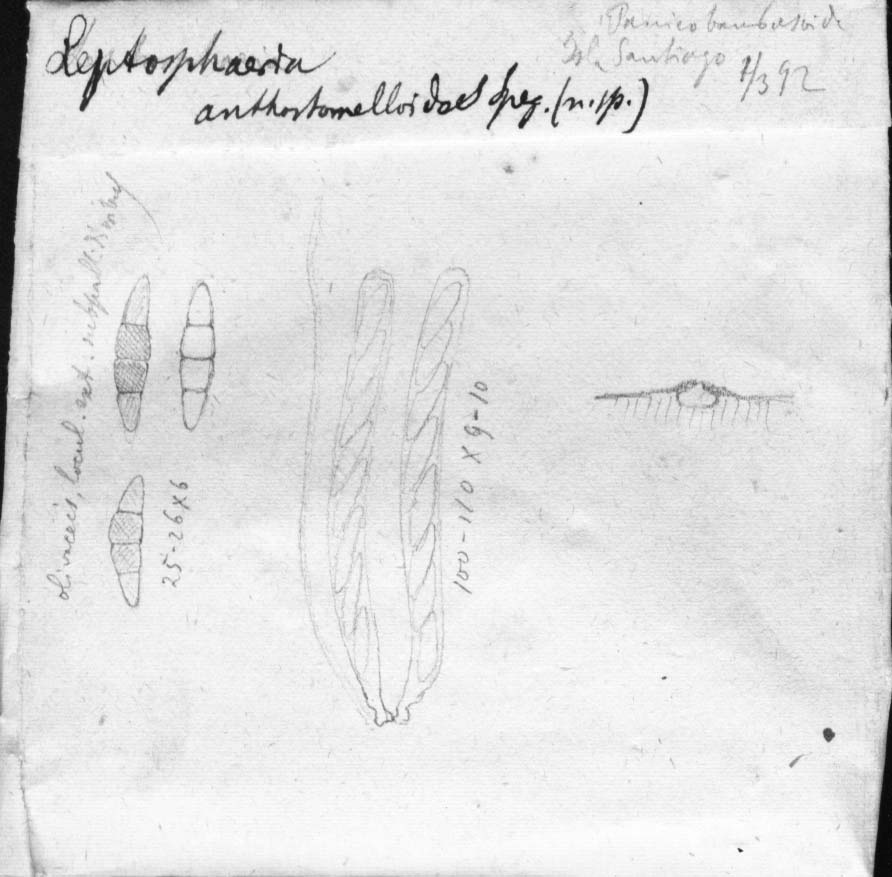 Panico bambusoide
Isla Santiago 1/3 92
Leptosphaeria
anthostomelloides Speg. (n. sp.)
olivaceis, locul. ext. subpall.
25-26 X 6
100-110 X 9-10